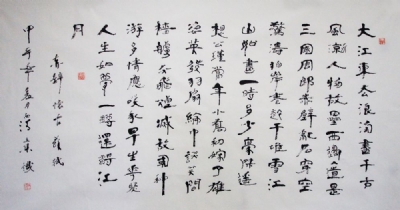 大江東去浪淘盡千古
風流人物故壘西邊道是
三國周郎赤壁亂石穿空
驚濤拍岸卷起千堆雪江
山如畫一時多少豪傑遙
想公瑾當年小喬初嫁了雄
姿英發羽扇綸巾談笑間
檣艫灰飛煙滅故國神
游多情應笑我早生華髮
人生如夢一尊還酹江
月
赤壁懷古
甲午年